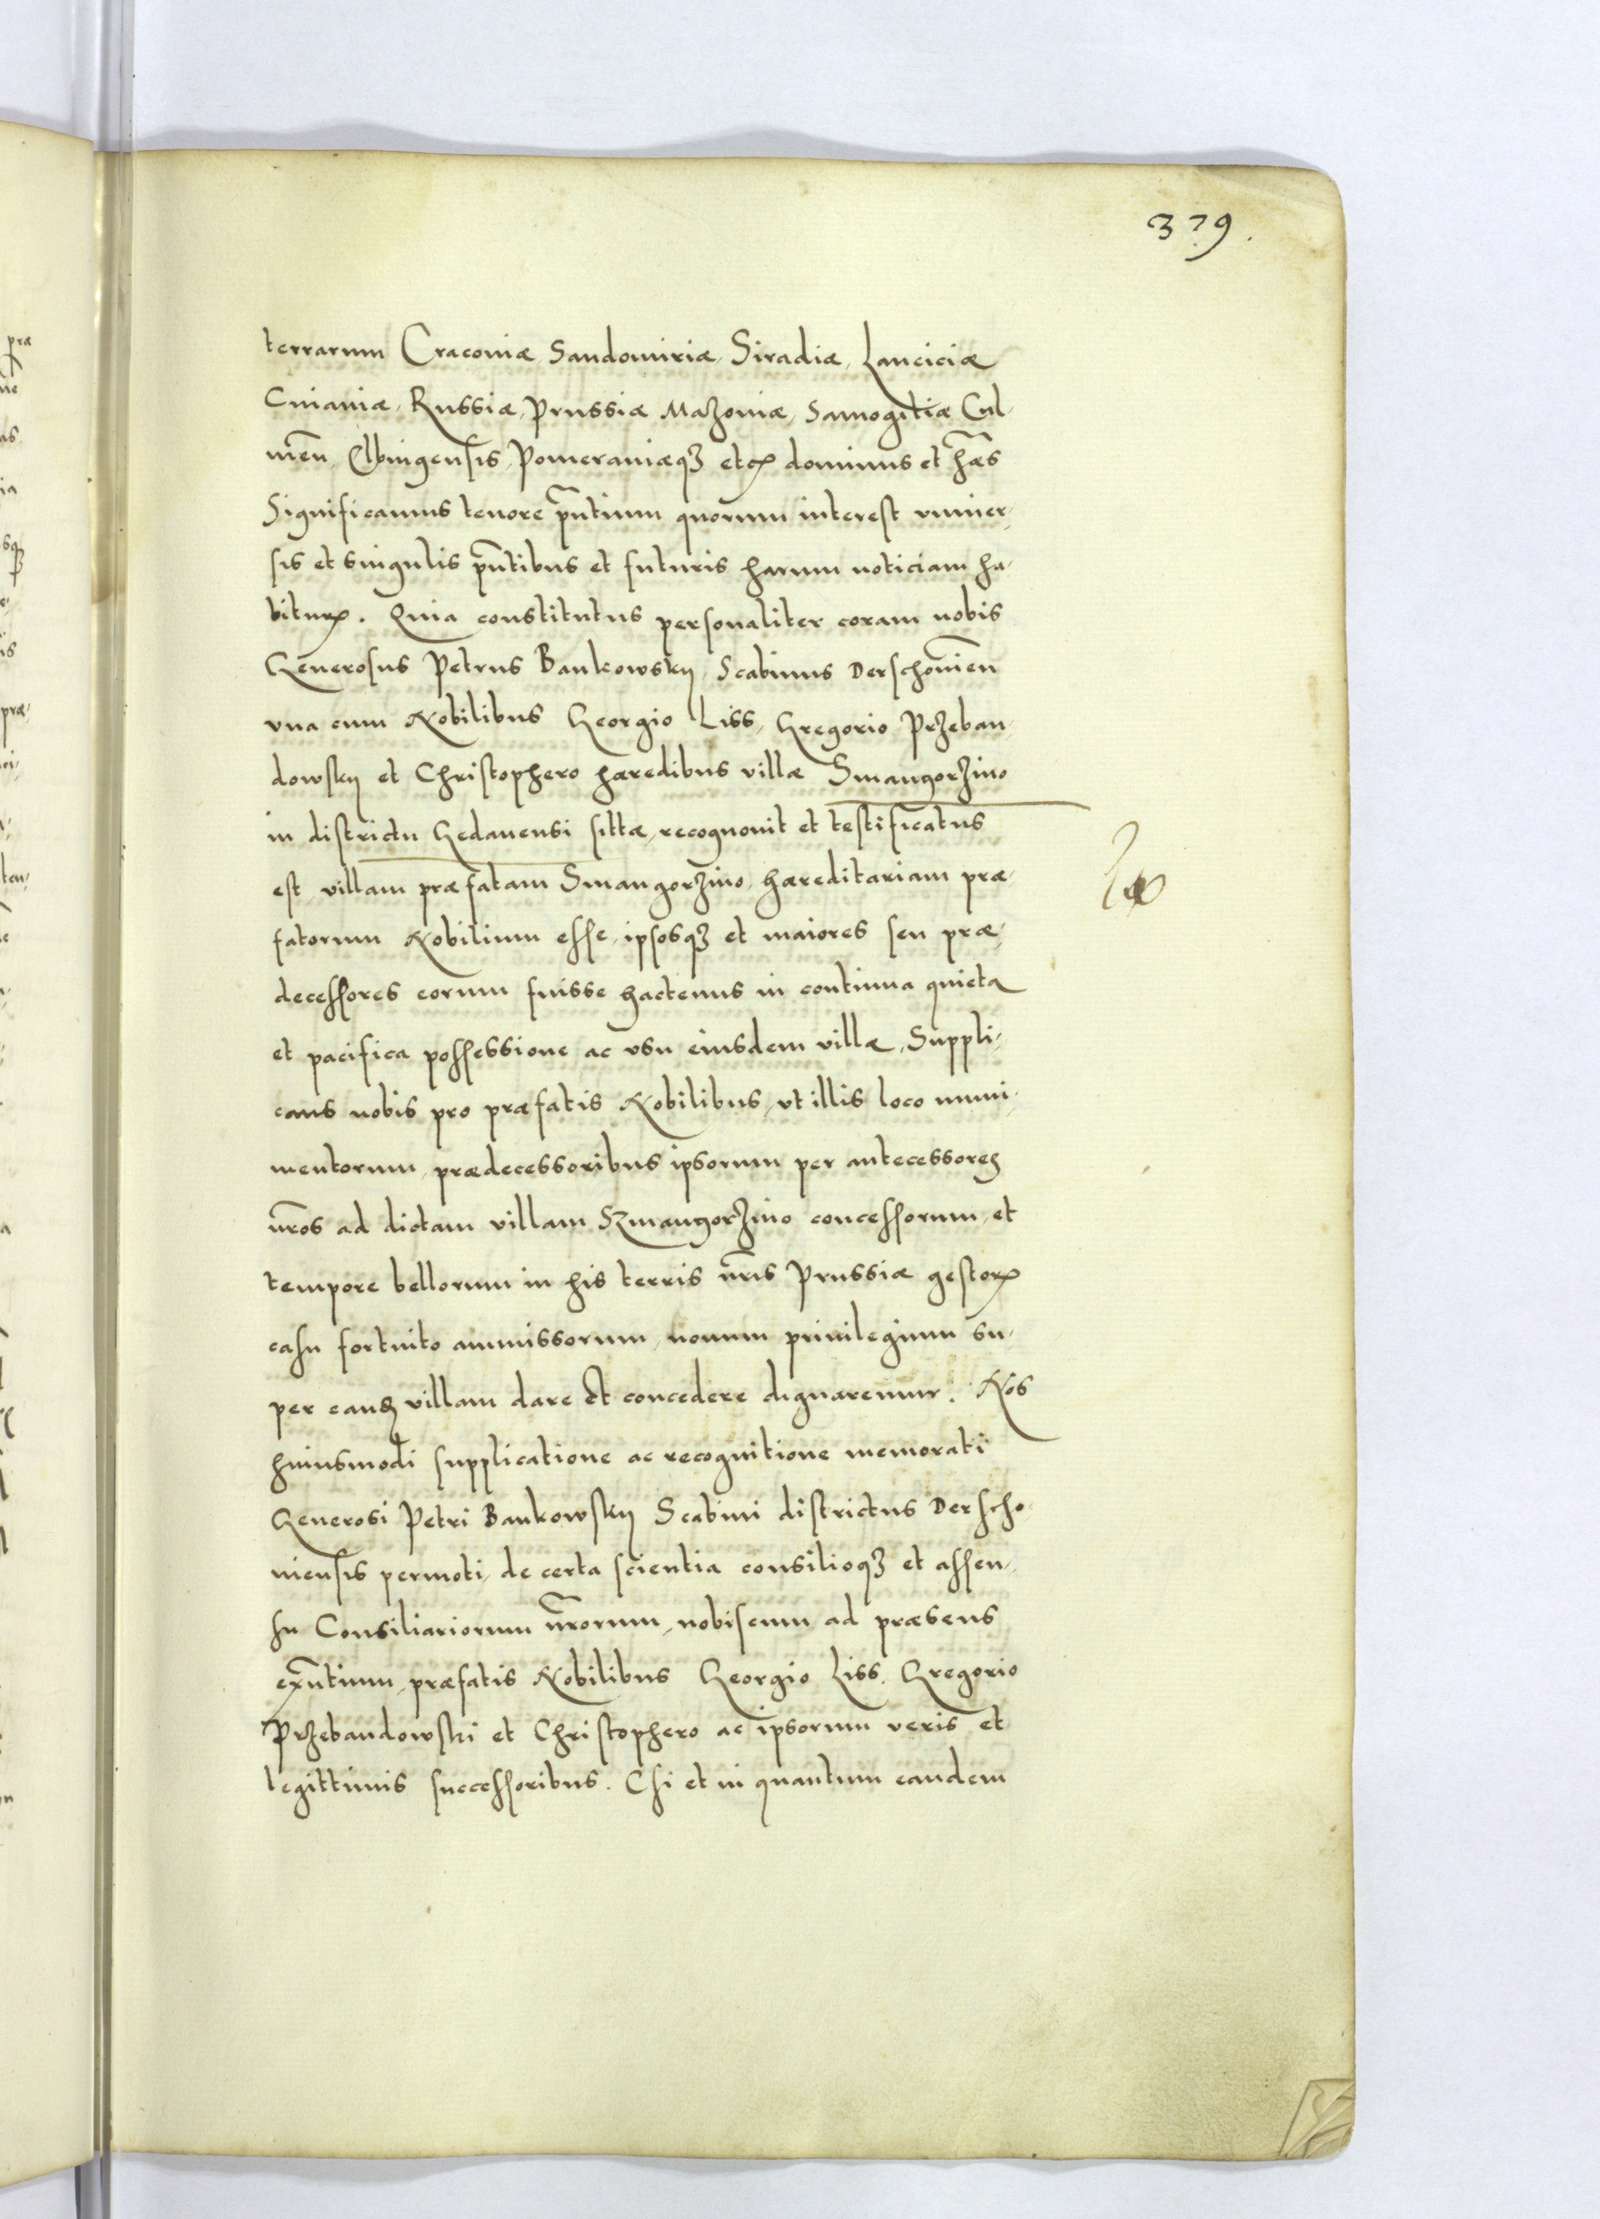 379.
terrarum Cracoviæ Sandomiriæ, Siradiæ, Lanciciæ
Cuiaviæ, Russiæ, Prussiæ Mazoviæ, Samogitiæ Cul-
meñ, Elbingensis, Pomeraniæqꝫ etcꝝ dominus et hæ̃s
Significamus tenore pñtium quorum interest vniuer-
sis et singulis pñtibus et futuris harum noticiam ha-
bituꝝ. Quia constitutus personaliter coram nobis
Generosus Petrus Bankowskij, Scabinus Derschovieñ
vna cum Nobilibus Georgio Liss, Gregorio Przeban-
dowskij et Christophero hæredibus villæ Smangorzino
in districtu Gedanensi sittæ, recognouit et testificatus
est, villam præfatam Smangorzino, hæreditariam præ-
fatorum Nobilium esse, ipsosqꝫ et maiores seu præ-
decessores eorum fuisse hactenus in continua quieta
et pacifica possessione ac vsu eiusdem villæ, Suppli-
cans nobis pro præfatis Nobilibus, vt illis loco muni-
mentorum, prædecessoribus ipsorum per antecessores
nr̃os ad dictam villam Szmangorzino concessorum, et
tempore bellorum in his terris nr̃is Prussiæ gestoꝝ
casu fortuito ammissorum, nouum priuilegium su-
per eandꝫ villam dare et concedere dignaremur. Nos
huiusmodi supplicatione ac recognitione memorati
Generosi Petri Bankowskij Scabini districtus Derscho-
uiensis permoti, de certa scientia consilioqꝫ et assen-
su Consiliariorum nr̃orum, nobiscum ad præsens
exñtium, præfatis Nobilibus Georgio Liss. Gregorio
Przebandowski et Christophero ac ipsorum veris et
legittimis successoribus. Esi et in quantum eandem